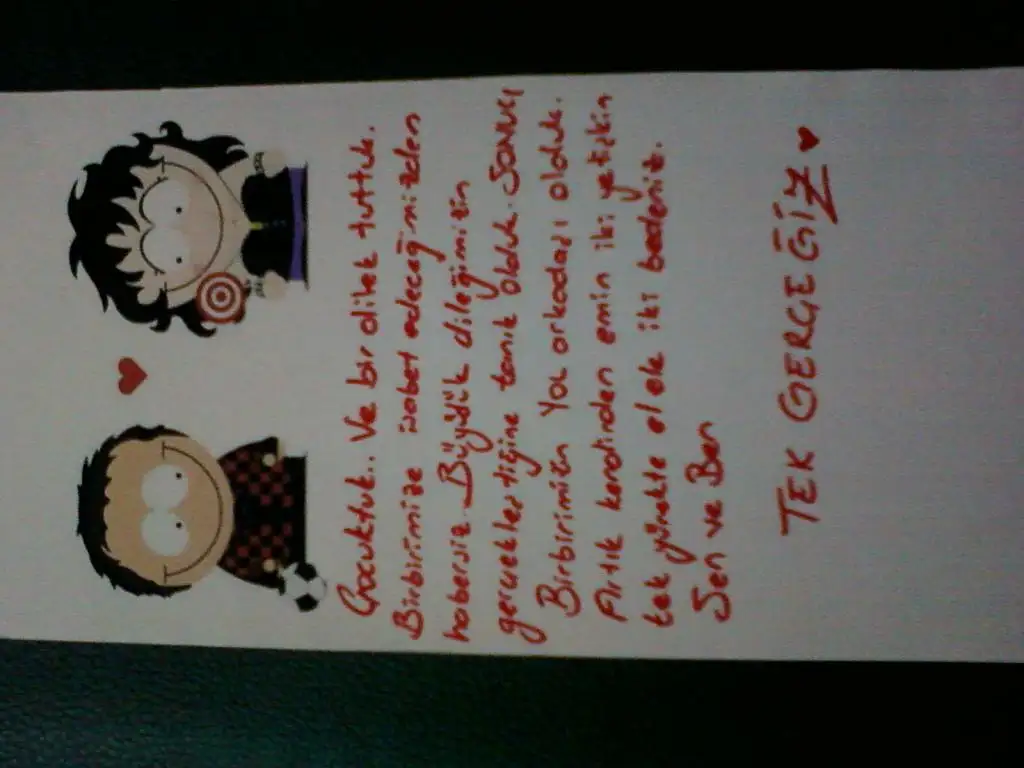 Çocuktuk.. Ve bir dilek tuttuk.
Birbirimize isabet edeceğimizden
habersiz. Büyüdük dileğimizin
gerçekleştiğine tanık olduk. Sonuç
Birbirimizin Yol arkadaşı olduk.
Artık kendinden emin iki yetişkin
tek yürekte el ele iki bedeniz.
Sen ve Ben
TEK GERÇEĞİZ